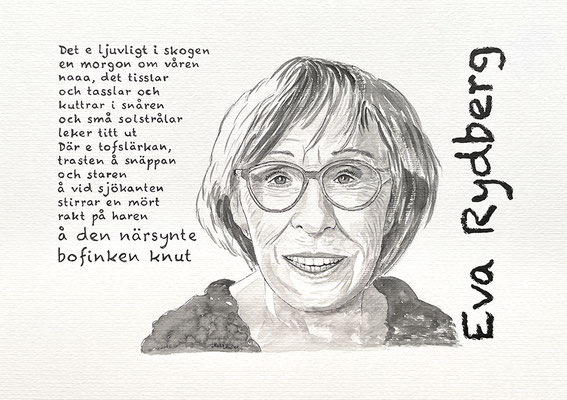 Det e ljuvligt i skogen
en morgon om våren
naaa, det tisslar
och tasslar och
kuttrar i snåren
och små solstrålar
leker titt ut
Där e tofslärkan,
trasten å snäppan
och staren
å vid sjökanten
stirrar en mört
rakt på haren
å den närsynte
bofinken knut
Eva Rydberg